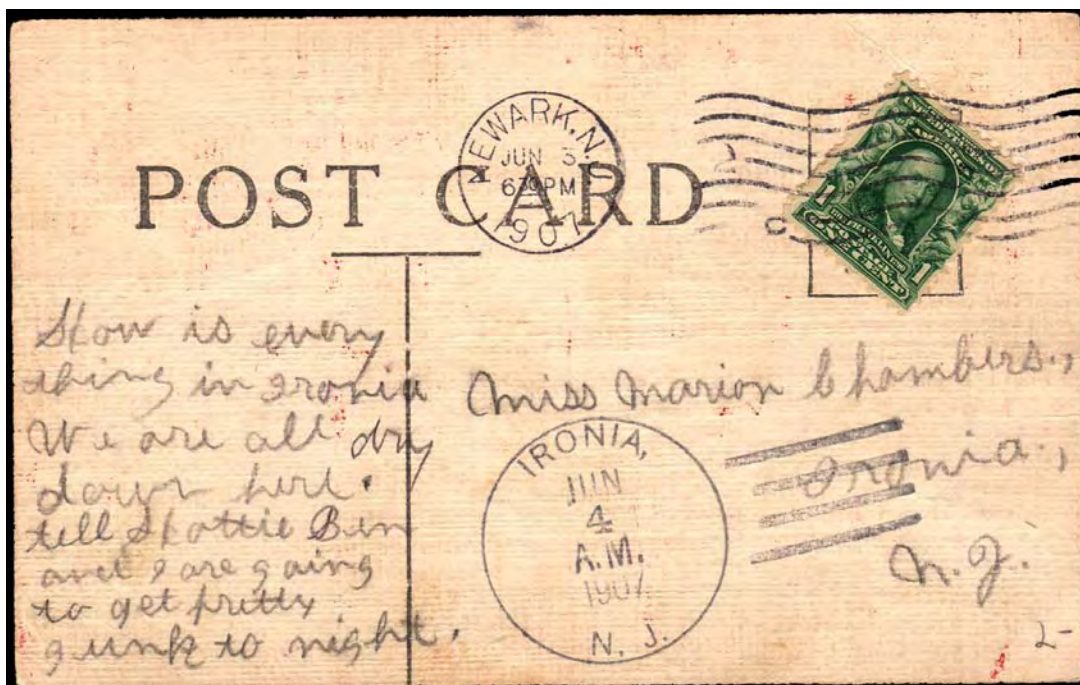 POST CARD
NEWARK, N.J.
JUN 3
630 PM
1907
UNITED STATES OF AMERICA
1 1
ONE CENT
How is every
thing in Ironia
We are all dry
down here.
tell Hottie Ben
and I are going
to get pretty
gunk to night.
Miss Marion Chambers.,
Ironia.,
N.J.
IRONIA,
JUN
4
A.M.
1907
N. J.
2-